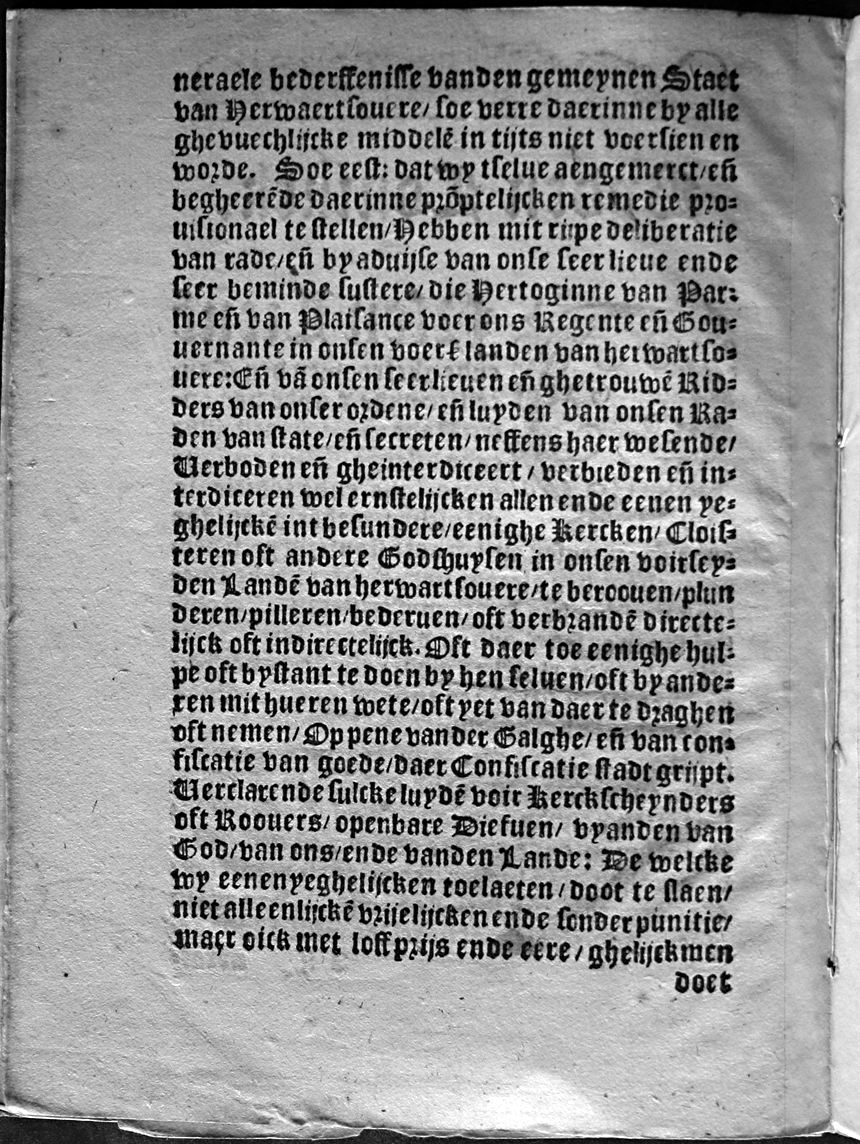 neraele bederffenisse vanden gemeynen Staet
van Herwaertsouere/ soe verre daerinne by alle
ghevuechlijcke middelē in tijts niet voersien en
worde. Soe eest: dat wy tselue aengemerct/ eñ
begheerēde daerinne prōptelijcken remedie pro⸗
uisionael te stellen/ Hebben mit rijpe deliberatie
van rade/ eñ by aduijse van onse seer lieue ende
seer beminde sustere/ die Hertoginne van Par⸗
me eñ van Plaisance voer ons Regente eñ Gou⸗
uernante in onsen voers landen van herwartso⸗
uere: Eñ vā onsen seer lieuen eñ ghetrouwē Rid⸗
ders van onser ordene/ eñ luyden van onsen Ra⸗
den van state/ eñ secreten/ neffens haer wesende/
Verboden eñ gheinterdiceert/ verbieden eñ in⸗
terdiceren wel ernstelijcken allen ende eenen ye⸗
ghelijckē int besundere/ eenighe Kercken/ Clois⸗
teren oft andere Godshuysen in onsen voirsey⸗
den Landē van herwartsouere/ te beroouen/ plun
deren/ pilleren/ bederuen/ oft verbrandē directe⸗
lijck oft indirectelijck. Oft daer toe eenighe hul⸗
pe oft bystant te doen by hen seluen/ oft by ande⸗
ren mit hueren wete/ oft yet van daer te draghen
oft nemen/ Op pene vander Galghe/ eñ van con⸗
fiscatie van goede/ daer Confiscatie stadt grijpt.
Verclarende sulcke luydē voir Kerckscheynders
oft Roouers/ openbare Diefuen/ vyanden van
God/ van ons/ ende vanden Lande: De welcke
wy eenen yeghelijcken toelaeten/ doot te slaen/
niet alleenlijckē vrijelijcken ende sonder punitie/
maer oick met loff prijs ende eere/ ghelijckmen
doet